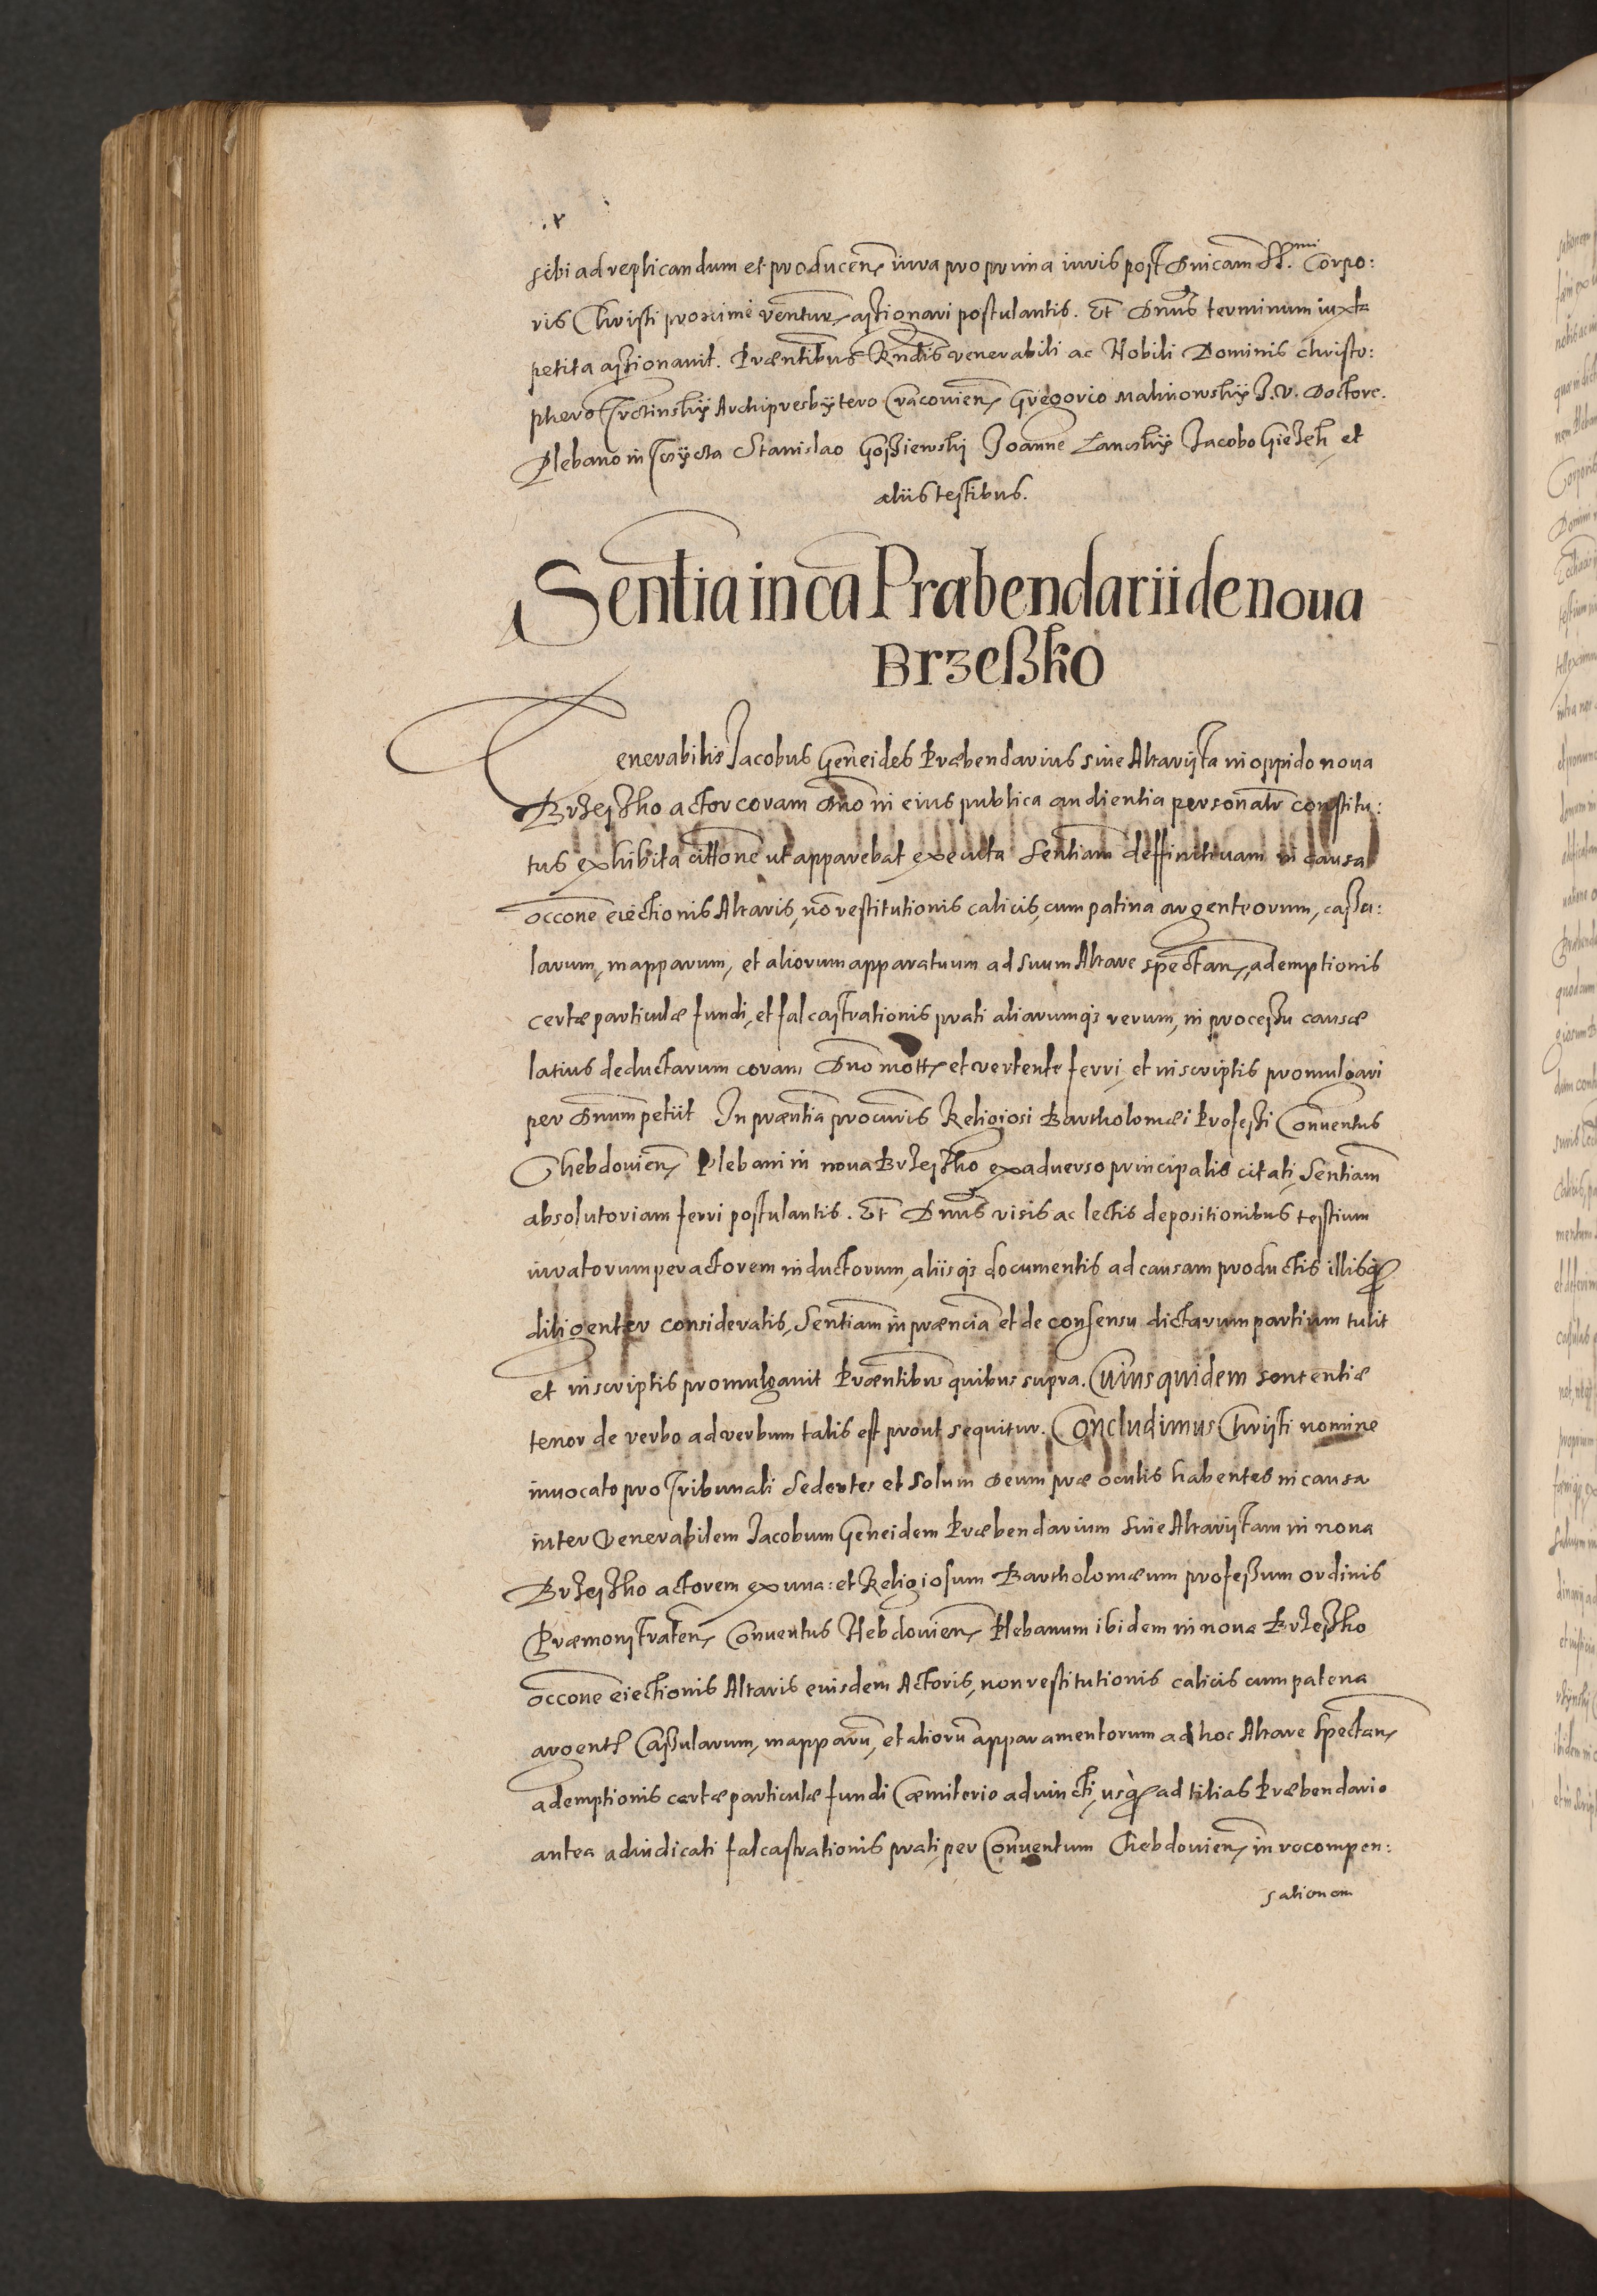 sibi ad replicandum et producen iura pro prima iuris post Dnicam SS.mi Corpo:
ris Christi proxime ventur assignari postulantis. Et Dnus terminum iuxta
petita assignavit. Præntibus Rndis venerabili ac Nobili Dominis Christo:
phero Trctinskÿ Archipresbÿtero Cracovien Gregorio Malinowskÿ J. V. Doctore.
Plebano in Stanislao Gossiewskj Joanne Lanckÿ Jacobo Giezek et
aliis testibus.
Sentia in ca Præbendarii de noua
Brzeßko
Venerabilis Jacobus Geneides Præbendarius siue Altarista in oppido noua
Brzesko actor coram Dno in eius publica audientia personalr constitu:
tus exhibita cittone ut apparebat executa Sentiam deffinitiuam in causa
occone eiectionis Altaris, no restitutionis calicis, cum patina argenteorum, cassu:
larum, mapparum, et aliorum apparatuum ad suum Altare spectan, ademptionis
certæ particulæ fundi, et falcastrationis prati aliarumqs rerum, in processu causæ
latius deductarum coram Dno mott et vertente ferri et in scriptis promulgari
per Dnum petiit In præntia procuris Religiosi Bartholomæi Professi Conuentus
Chebdouien Plebani in noua Brzesko ex aduerso principalis citati Sentiam
absolutoriam ferri postulantis. Et Dnus visis ac lectis depositionibus testium
iuratorum per actorem inductorum, aliisqs documentis ad causam productis illisq
diligenter consideratis, Sentiam in præncia et de consensu dictarum partium tulit
et in scriptis promulgauit Præntibus quibus supra. Cuius quidem sententiæ
tenor de verbo ad verbum talis est prout sequitur. Concludimus Christi nomine
inuocato pro Tribunali Sedentes et Solum Deum præ oculis habentes in causa
inter Venerabilem Jacobum Geneidem Præbendarium Siue Altaristam in noua
Brzesko actorem ex una: et Religiosum Bartholomæum professum ordinis
Præmonstraten Conuentus Hebdouien Plebanum ibidem in noua Brzesko
occone eiectionis Altaris eiusdem Actoris, non restitutionis calicis cum patena
argent Cassularum, mapparu, et alioru apparamentorum ad hoc Altare Spectan
ademptionis certæ particulæ fundi Cæmiterio adiuncti, usq ad tilias Præbendario
antea adiudicati falcastrationis prati per Conuentum Chebdouien in recompen:
sationem